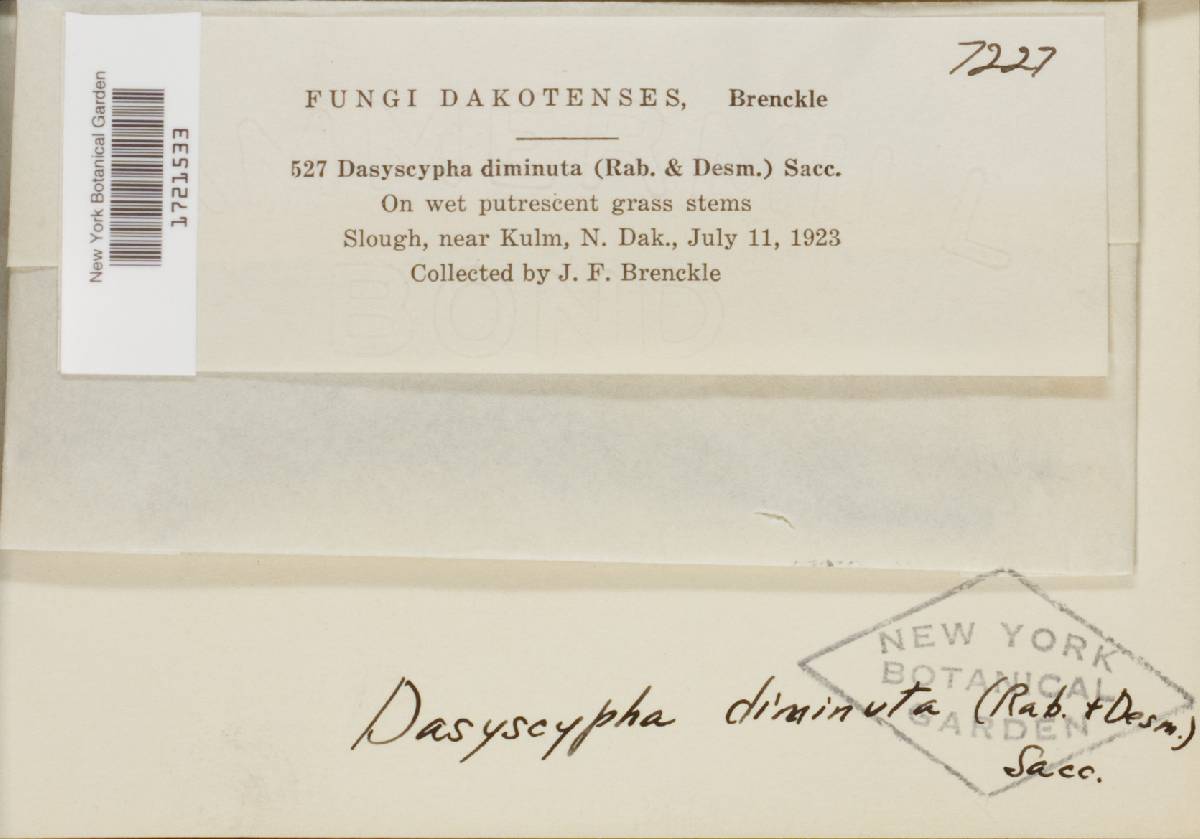 7227
New York Botanical Garden
1721533
FUNGI DAKOTENSES, Brenckle
527 Dasyscypha diminuta (Rab. & Desm.) Sacc.
On wet putrescent grass stems
Slough, near Kulm, N. Dak., July 11, 1923
Collected by J. F. Brenckle
BOND
NEW YORK
BOTANICAL
GARDEN
Dasyscypha diminuta (Rab. + Desm.)
Sacc.